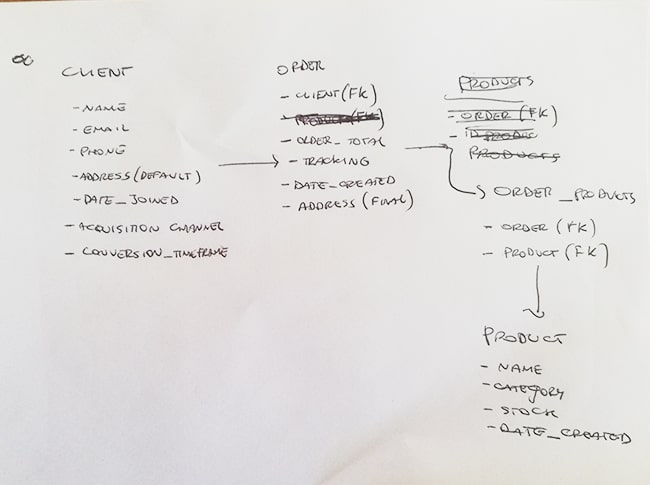 CLIENT
- NAME
- EMAIL
- PHONE
- ADDRESS (DEFAULT)
- DATE_JOINED
- ACQUISITION CHANNEL
- CONVERSION_TIMEFRAME
ORDER
- CLIENT (FK)
- PRODUCT (FK)
- ORDER_TOTAL
- TRACKING
- DATE_CREATED
- ADDRESS (FINAL)
PRODUCTS
- ORDER (FK)
- ID
PRODUCTS
ORDER_PRODUCTS
- ORDER (FK)
- PRODUCT (FK)
PRODUCT
- NAME
- CATEGORY
- STOCK
- DATE_CREATED